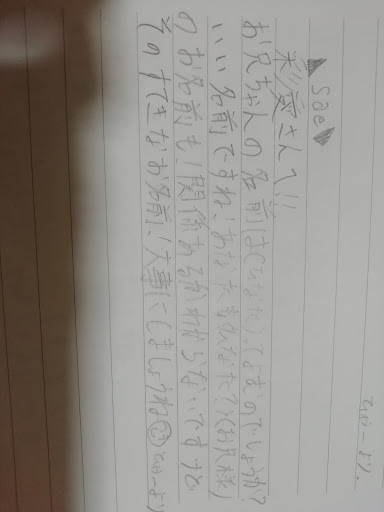 より.
sae
彩愛さんて!!
お兄ちゃんの名前は(ひなた)でよむのでしょうか?
いい名前ですね、あなたもひなた?(お兄様)
のお名前も!関係あるかわからないですけど
そのすてきなお名前!大事にしましょうね より